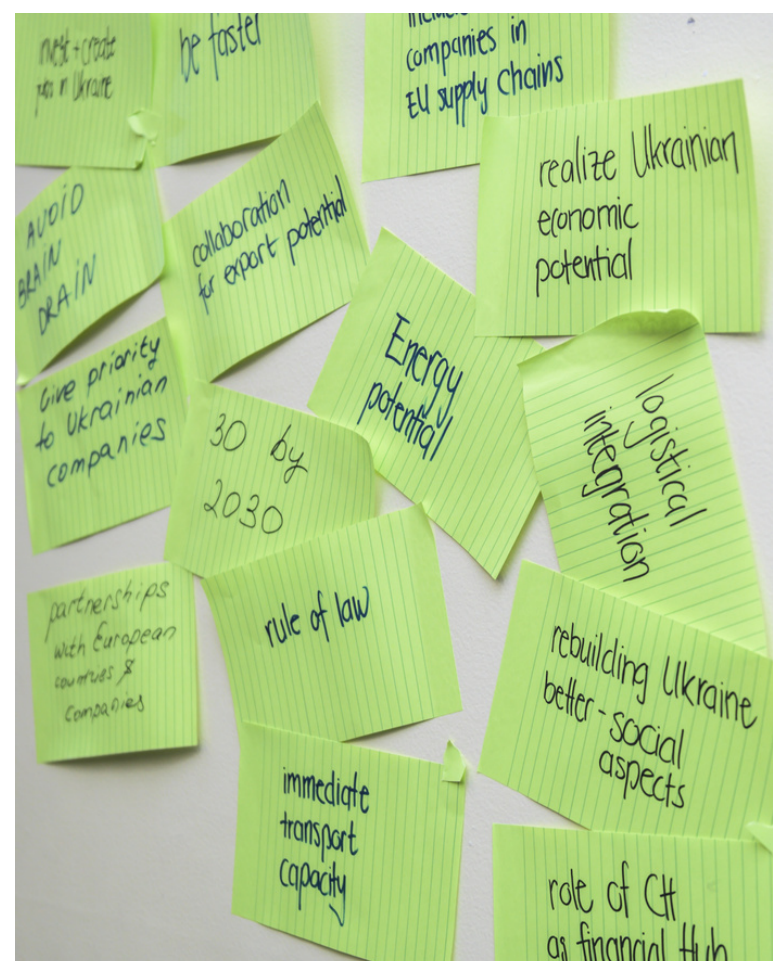 invest + create
jobs in Ukraine
be faster
companies in
EU supply chains
realize Ukrainian
economic
potential
AVOID
BRAIN
DRAIN
collaboration
for export potential
Energy
potential
Give priority
to Ukrainian
companies
30 by
2030
logistical
integration
partnerships
with European
countries &
companies
rule of law
rebuilding Ukraine
better - social
aspects
immediate
transport
capacity
role of CH
as financial Hub